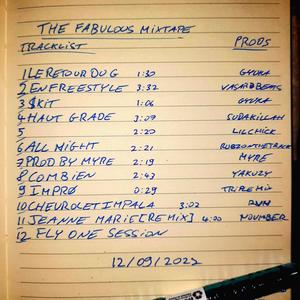 THE FABULOUS MIXTAPE
TRACKLIST PRODS
1 LE RETOUR DU G 1:30 GYDRA
2 EN FREESTYLE 3:32 VASARDBEATS
3 SKIT 1:06 GYDRA
4 HAUT GRADE 3:09 SUDAKILLAH
5 2:20 LILCHICK
6 ALL NIGHT 2:21 ROBZONTHETRACK
7 PROD BY MYRE 2:19 MYRE
8 COMBiEN 2:43 YAKUZY
9 IMPRO 0:29 TRIPLE MiX
10 CHEVROLET IMPALA 3:02
11 JEANNE MARIE [REMIX] 4:20 NOUMBER
12 FLY ONE SESSION
12/09/2022